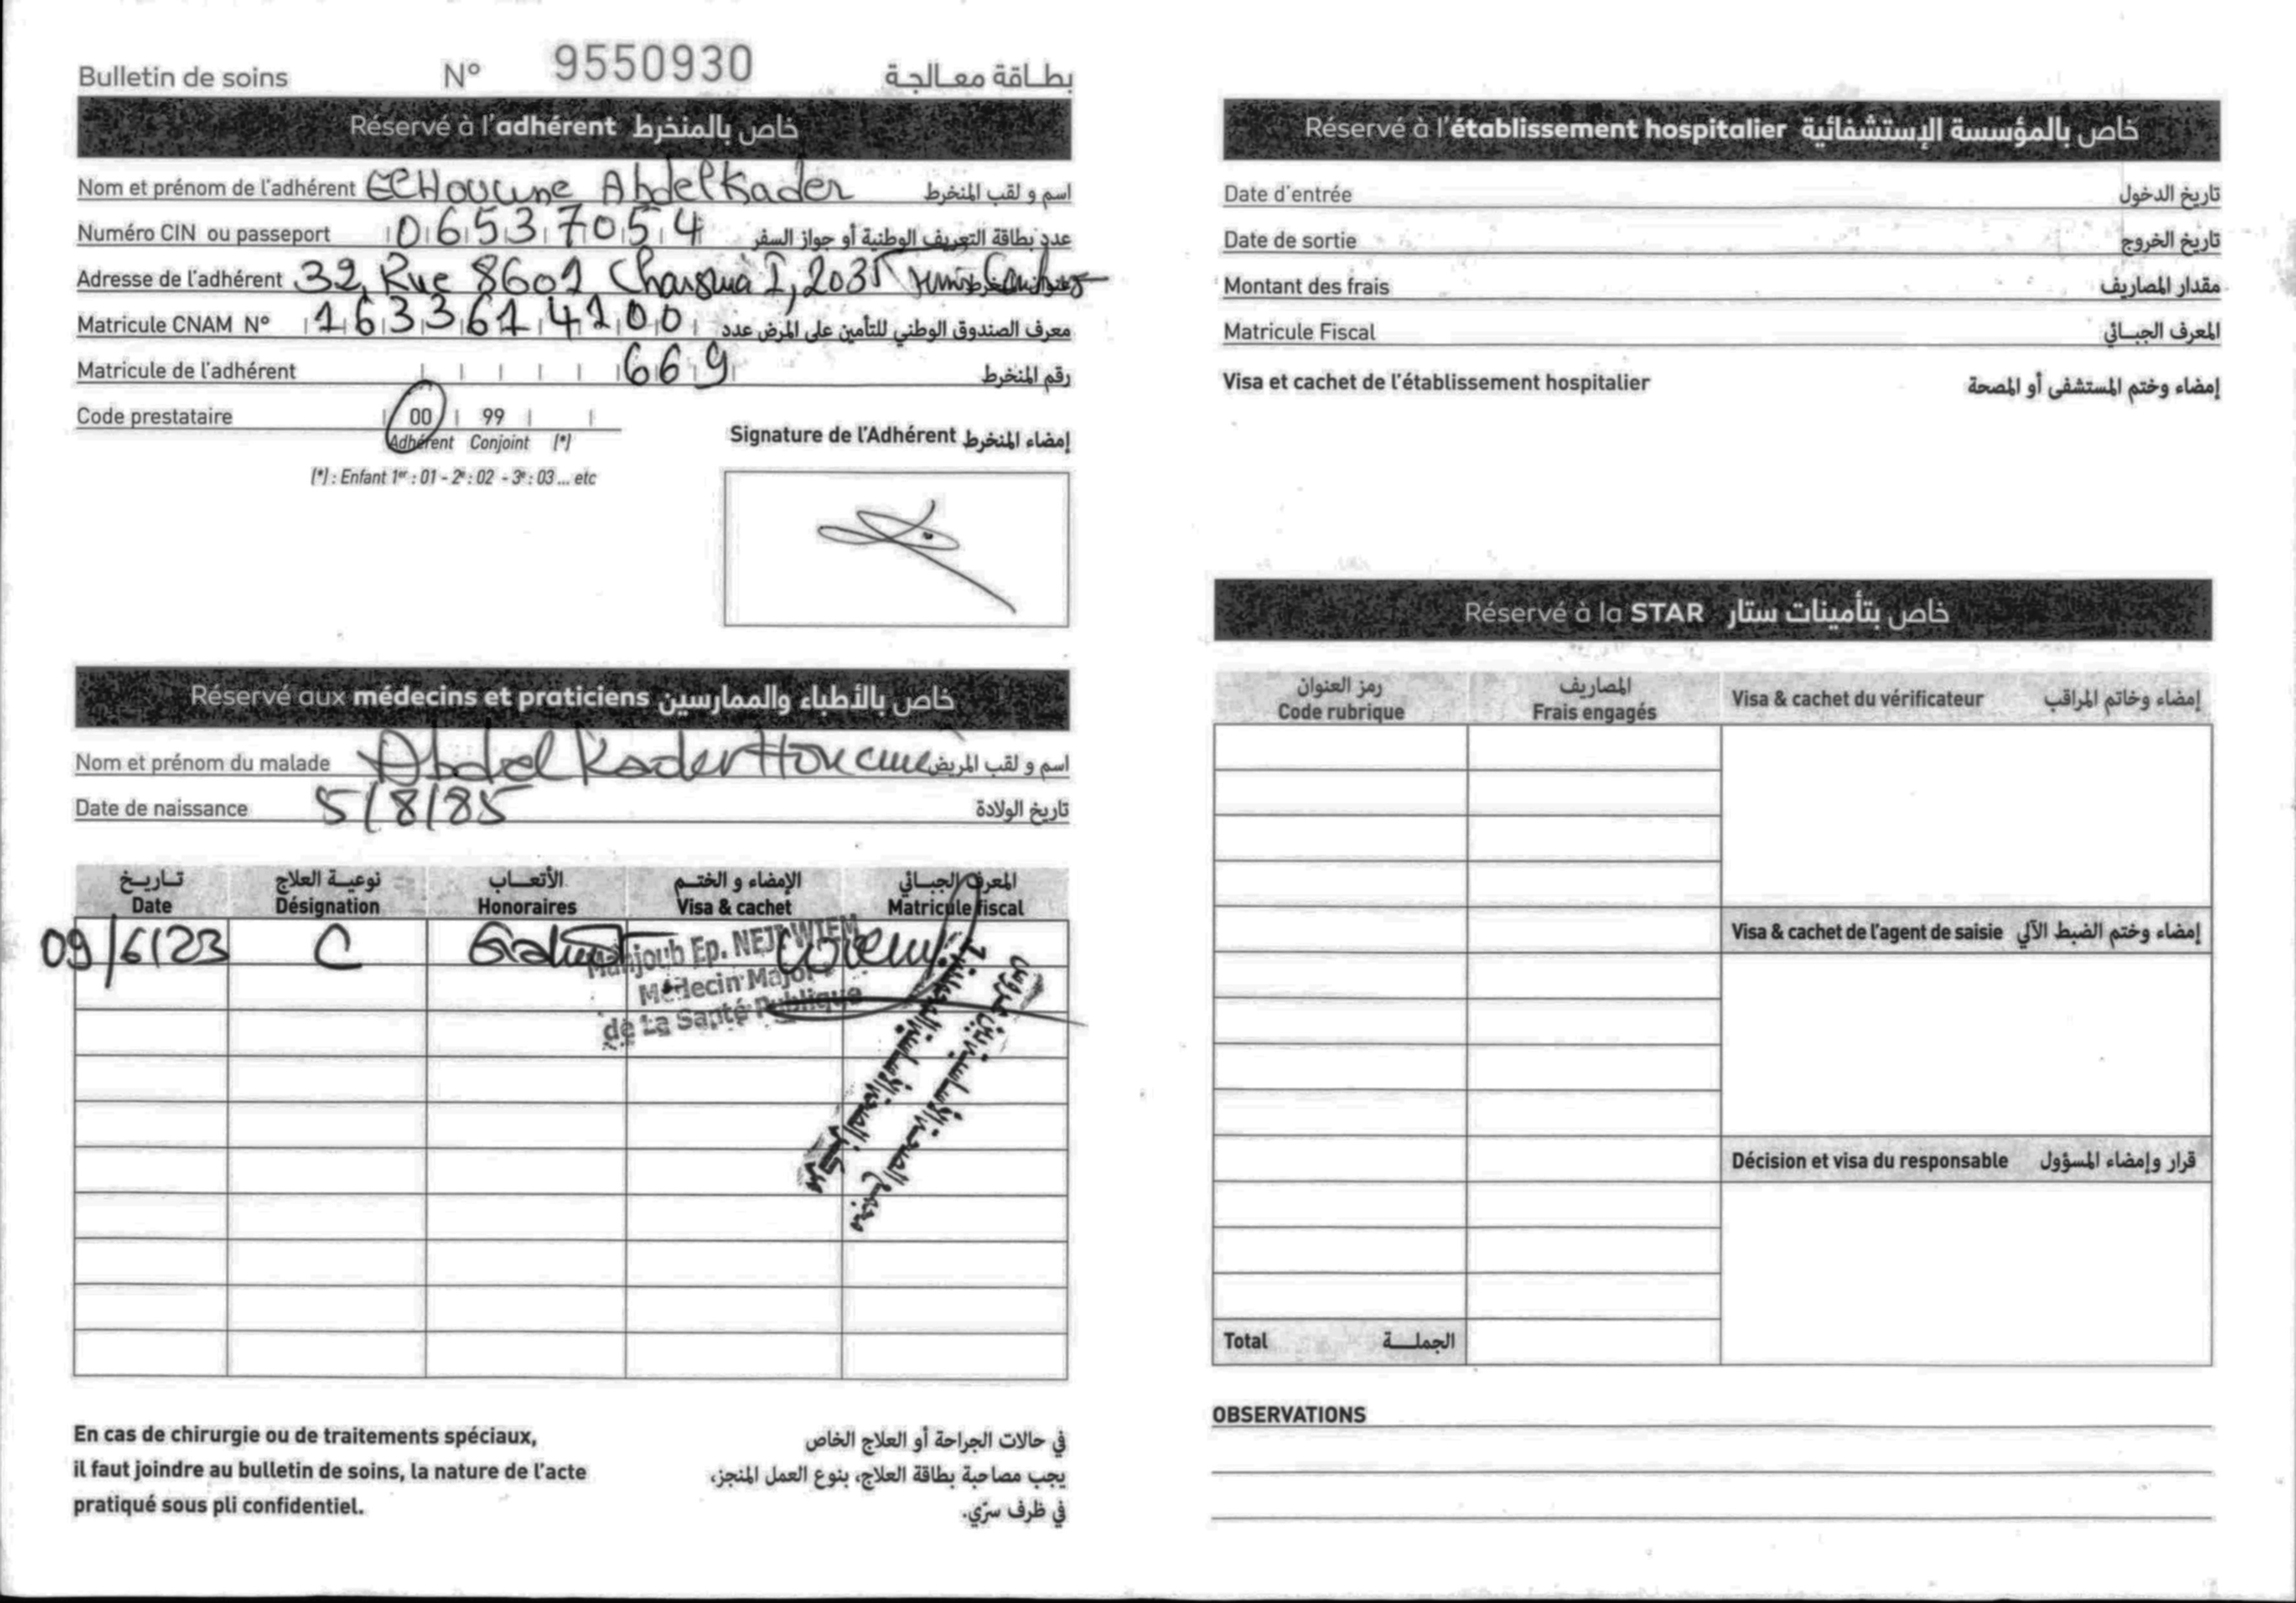 Bulletin de soins N° 9550930 بطاقة معالجة
Réservé à l'adhérent خاص بالمنخرط
Nom et prénom de l'adhérent ECHoucine Abdelkader اسم و لقب المنخرط
Numéro CIN ou passeport 06537054 عدد بطاقة التعريف الوطنية أو جواز السفر
Adresse de l'adhérent 32, Rue 8601 Charguia I, 2035 Tunis
Matricule CNAM N° 1633614100 معرف الصندوق الوطني للتأمين على المرض عدد
Matricule de l'adhérent 669 رقم المنخرط
Code prestataire 00 99
Adhérent Conjoint (*)
(*) : Enfant 1er : 01 - 2e : 02 - 3e : 03 ... etc
Signature de l'Adhérent إمضاء المنخرط
Réservé aux médecins et praticiens خاص بالأطباء والممارسين
Nom et prénom du malade Abdel Kader اسم و لقب المريض
Date de naissance 5/8/85 تاريخ الولادة
تاريخ نوعية العلاج الأتعاب الإمضاء و الختم المعرف الجبائي
Date Désignation Honoraires Visa & cachet Matricule fiscal
09/6/23 C
Mahjoub Ep. NEJI WIEM
Médecin Major
de La Santé Publique
En cas de chirurgie ou de traitements spéciaux,
il faut joindre au bulletin de soins, la nature de l'acte
pratiqué sous pli confidentiel.
في حالات الجراحة أو العلاج الخاص
يجب مصاحبة بطاقة العلاج، بنوع العمل المنجز،
في ظرف سرّي.
Réservé à l'établissement hospitalier خاص بالمؤسسة الإستشفائية
Date d'entrée تاريخ الدخول
Date de sortie تاريخ الخروج
Montant des frais مقدار المصاريف
Matricule Fiscal المعرف الجبائي
Visa et cachet de l'établissement hospitalier إمضاء وختم المستشفى أو المصحة
Réservé à la STAR خاص بتأمينات ستار
رمز العنوان المصاريف
Code rubrique Frais engagés
Visa & cachet du vérificateur إمضاء وخاتم المراقب
Visa & cachet de l'agent de saisie إمضاء وختم الضبط الآلي
Décision et visa du responsable قرار وإمضاء المسؤول
Total الجملة
OBSERVATIONS